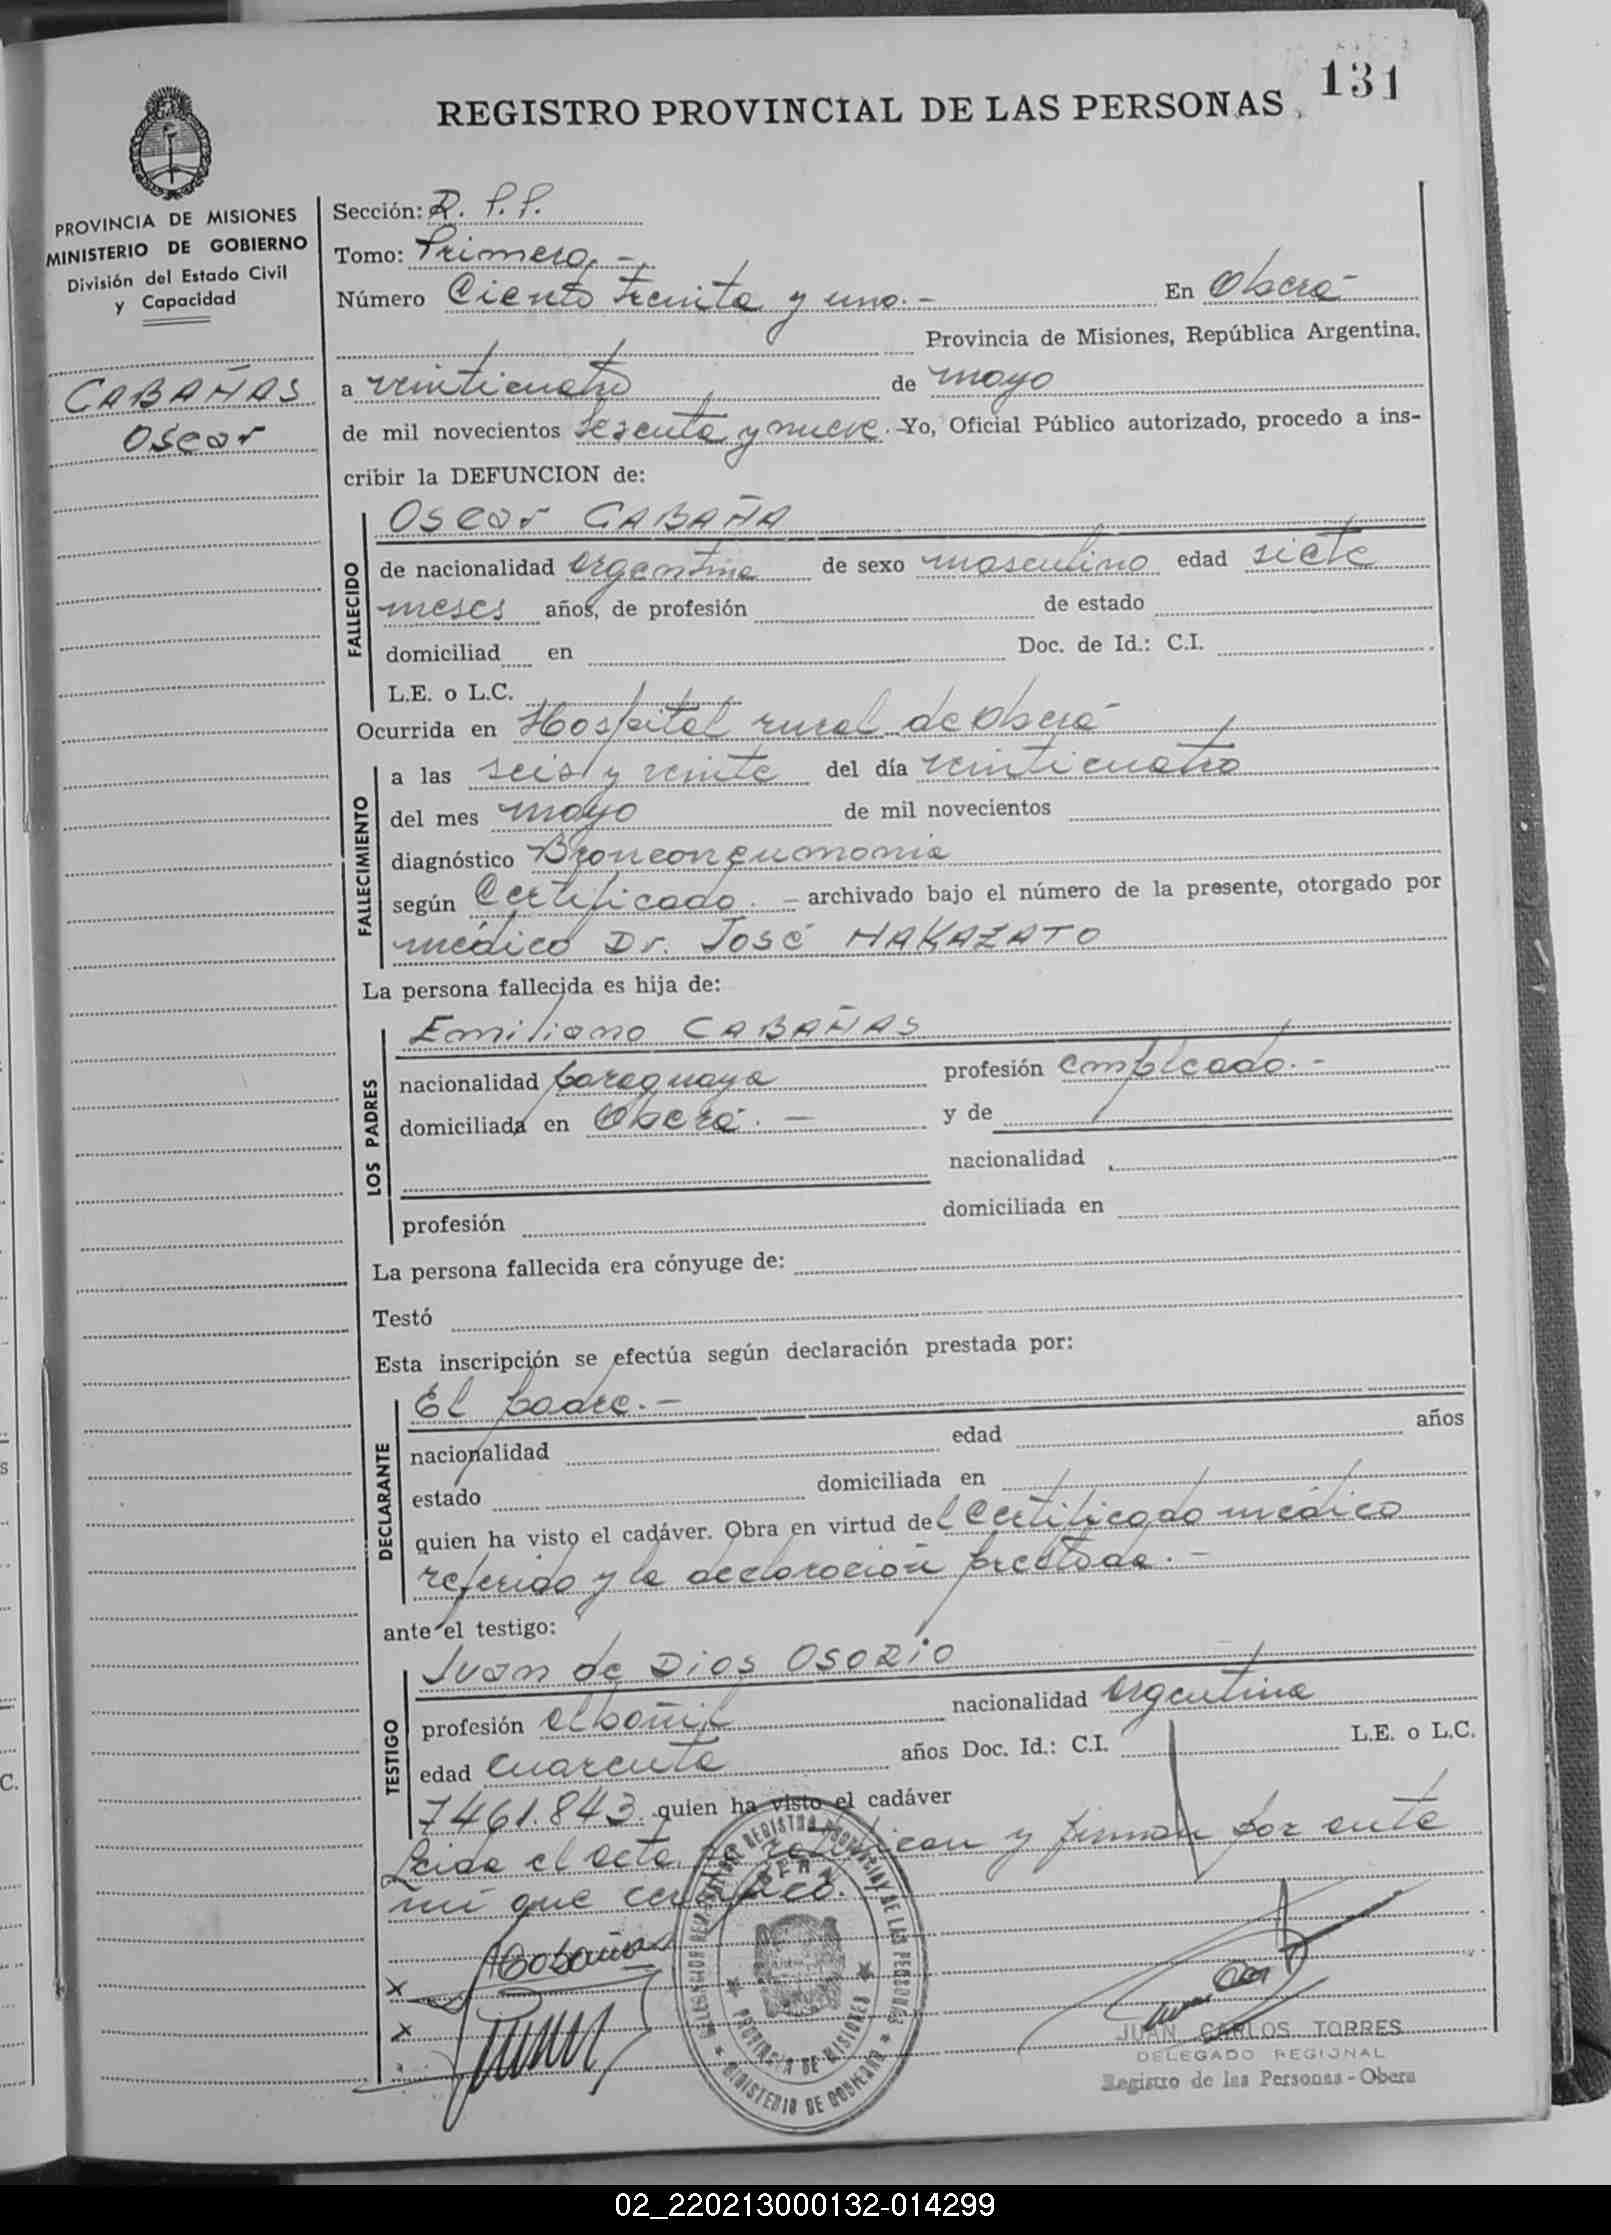 131
REGISTRO PROVINCIAL DE LAS PERSONAS
PROVINCIA DE MISIONES
MINISTERIO DE GOBIERNO
División del Estado Civil
y Capacidad
CABAÑAS
Oscar
Sección: R. P. P.
Tomo: Primero. -
Número Ciento treinta y uno. - En Oberá
Provincia de Misiones, República Argentina,
a veinticuatro de mayo
de mil novecientos sesenta y nueve. Yo, Oficial Público autorizado, procedo a ins-
cribir la DEFUNCION de:
FALLECIDO
Oscar CABAÑA
de nacionalidad argentina de sexo masculino edad siete
meses años, de profesión de estado
domiciliad en Doc. de Id.: C.I.
L.E. o L.C.
Ocurrida en Hospital rural de Oberá
FALLECIMIENTO
a las seis y veinte del día veinticuatro
del mes mayo de mil novecientos
diagnóstico Bronconeumonia
según Certificado. - archivado bajo el número de la presente, otorgado por
médico Dr. José NAKAZATO
La persona fallecida es hija de:
LOS PADRES
Emiliano CABAÑAS
nacionalidad paraguaya profesión empleado. -
domiciliada en Oberá. - y de
nacionalidad
profesión domiciliada en
La persona fallecida era cónyuge de:
Testó
Esta inscripción se efectúa según declaración prestada por:
DECLARANTE
El padre. -
nacionalidad edad años
estado domiciliada en
quien ha visto el cadáver. Obra en virtud del Certificado médico
referido y la declaración prestada. -
ante el testigo:
TESTIGO
Juan de Dios OSORIO
profesión albañil nacionalidad argentina
edad cuarenta años Doc. Id.: C.I. L.E. o L.C.
7461.843 quien ha visto el cadáver
Leida el acta, la ratifican y firman por ante
mí que certifico.
x Cabañas
x
REGISTRO PROVINCIAL DE LAS PERSONAS
OBERA
PROVINCIA DE MISIONES
MINISTERIO DE GOBIERNO
JUAN CARLOS TORRES
DELEGADO REGIONAL
Registro de las Personas - Obera
02_220213000132-014299